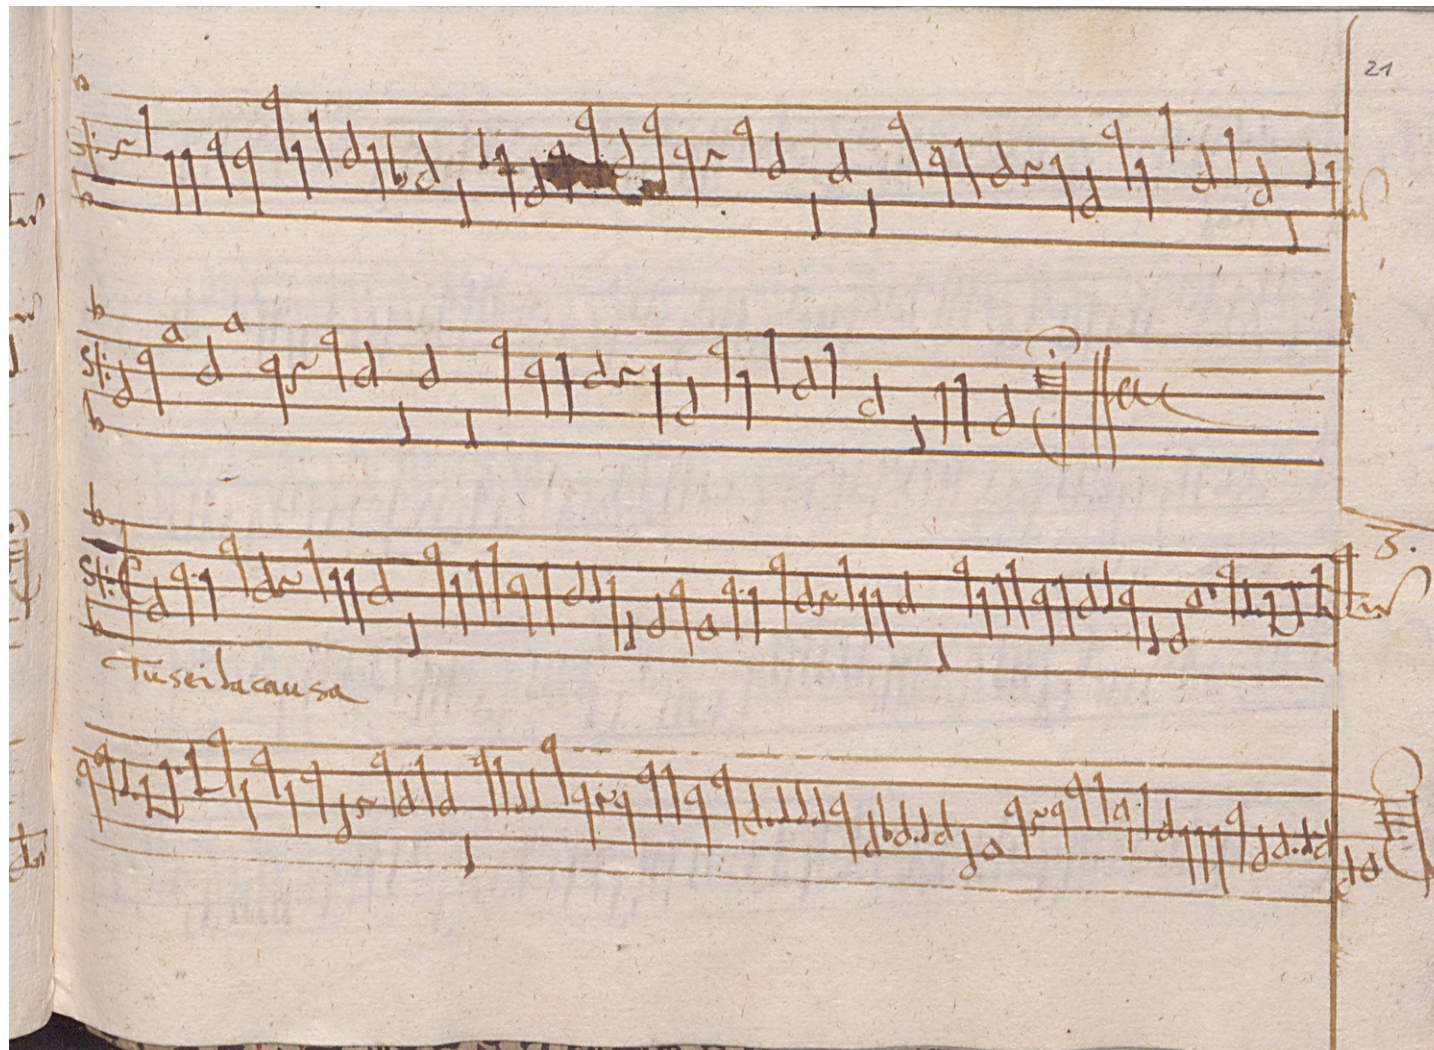 21
3.
Tu sei la causa